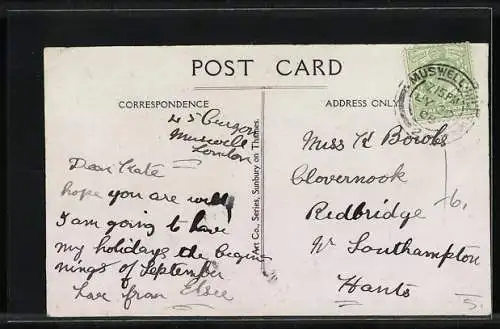 POST CARD
CORRESPONDENCE
ADDRESS ONLY
MUSWELL HILL
7.15 PM
45 Curzon
Muswell
London
Dear Kate
hope you are well
I am going to have
my holidays the begin
nings of September
Love from Elsie
Art Co., Series, Sunbury on Thames.
Miss K Bowles
Clovernook
Redbridge
Nr Southampton
Hants
6.
5.